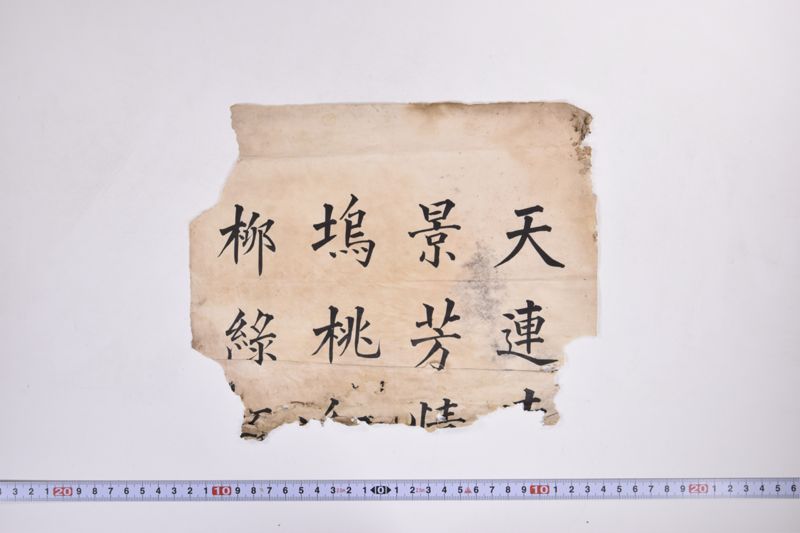 天連
景芳情
塢桃
柳綠
3 2 1 20 9 8 7 6 5 4 3 2 1 10 9 8 7 6 5 4 3 2 1 0 1 2 3 4 5 6 7 8 9 10 1 2 3 4 5 6 7 8 9 20 1 2 3 4 5 6